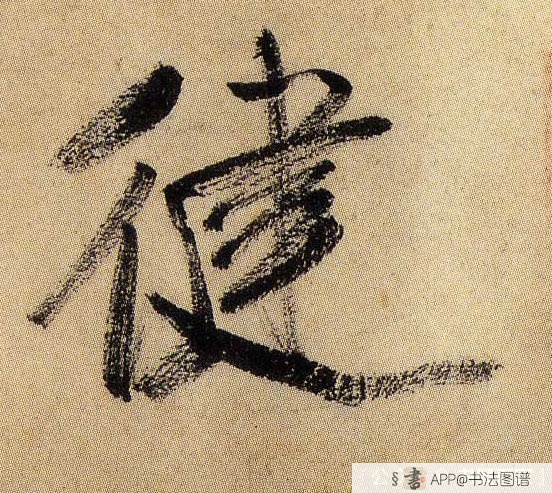 健
書 APP@书法图谱